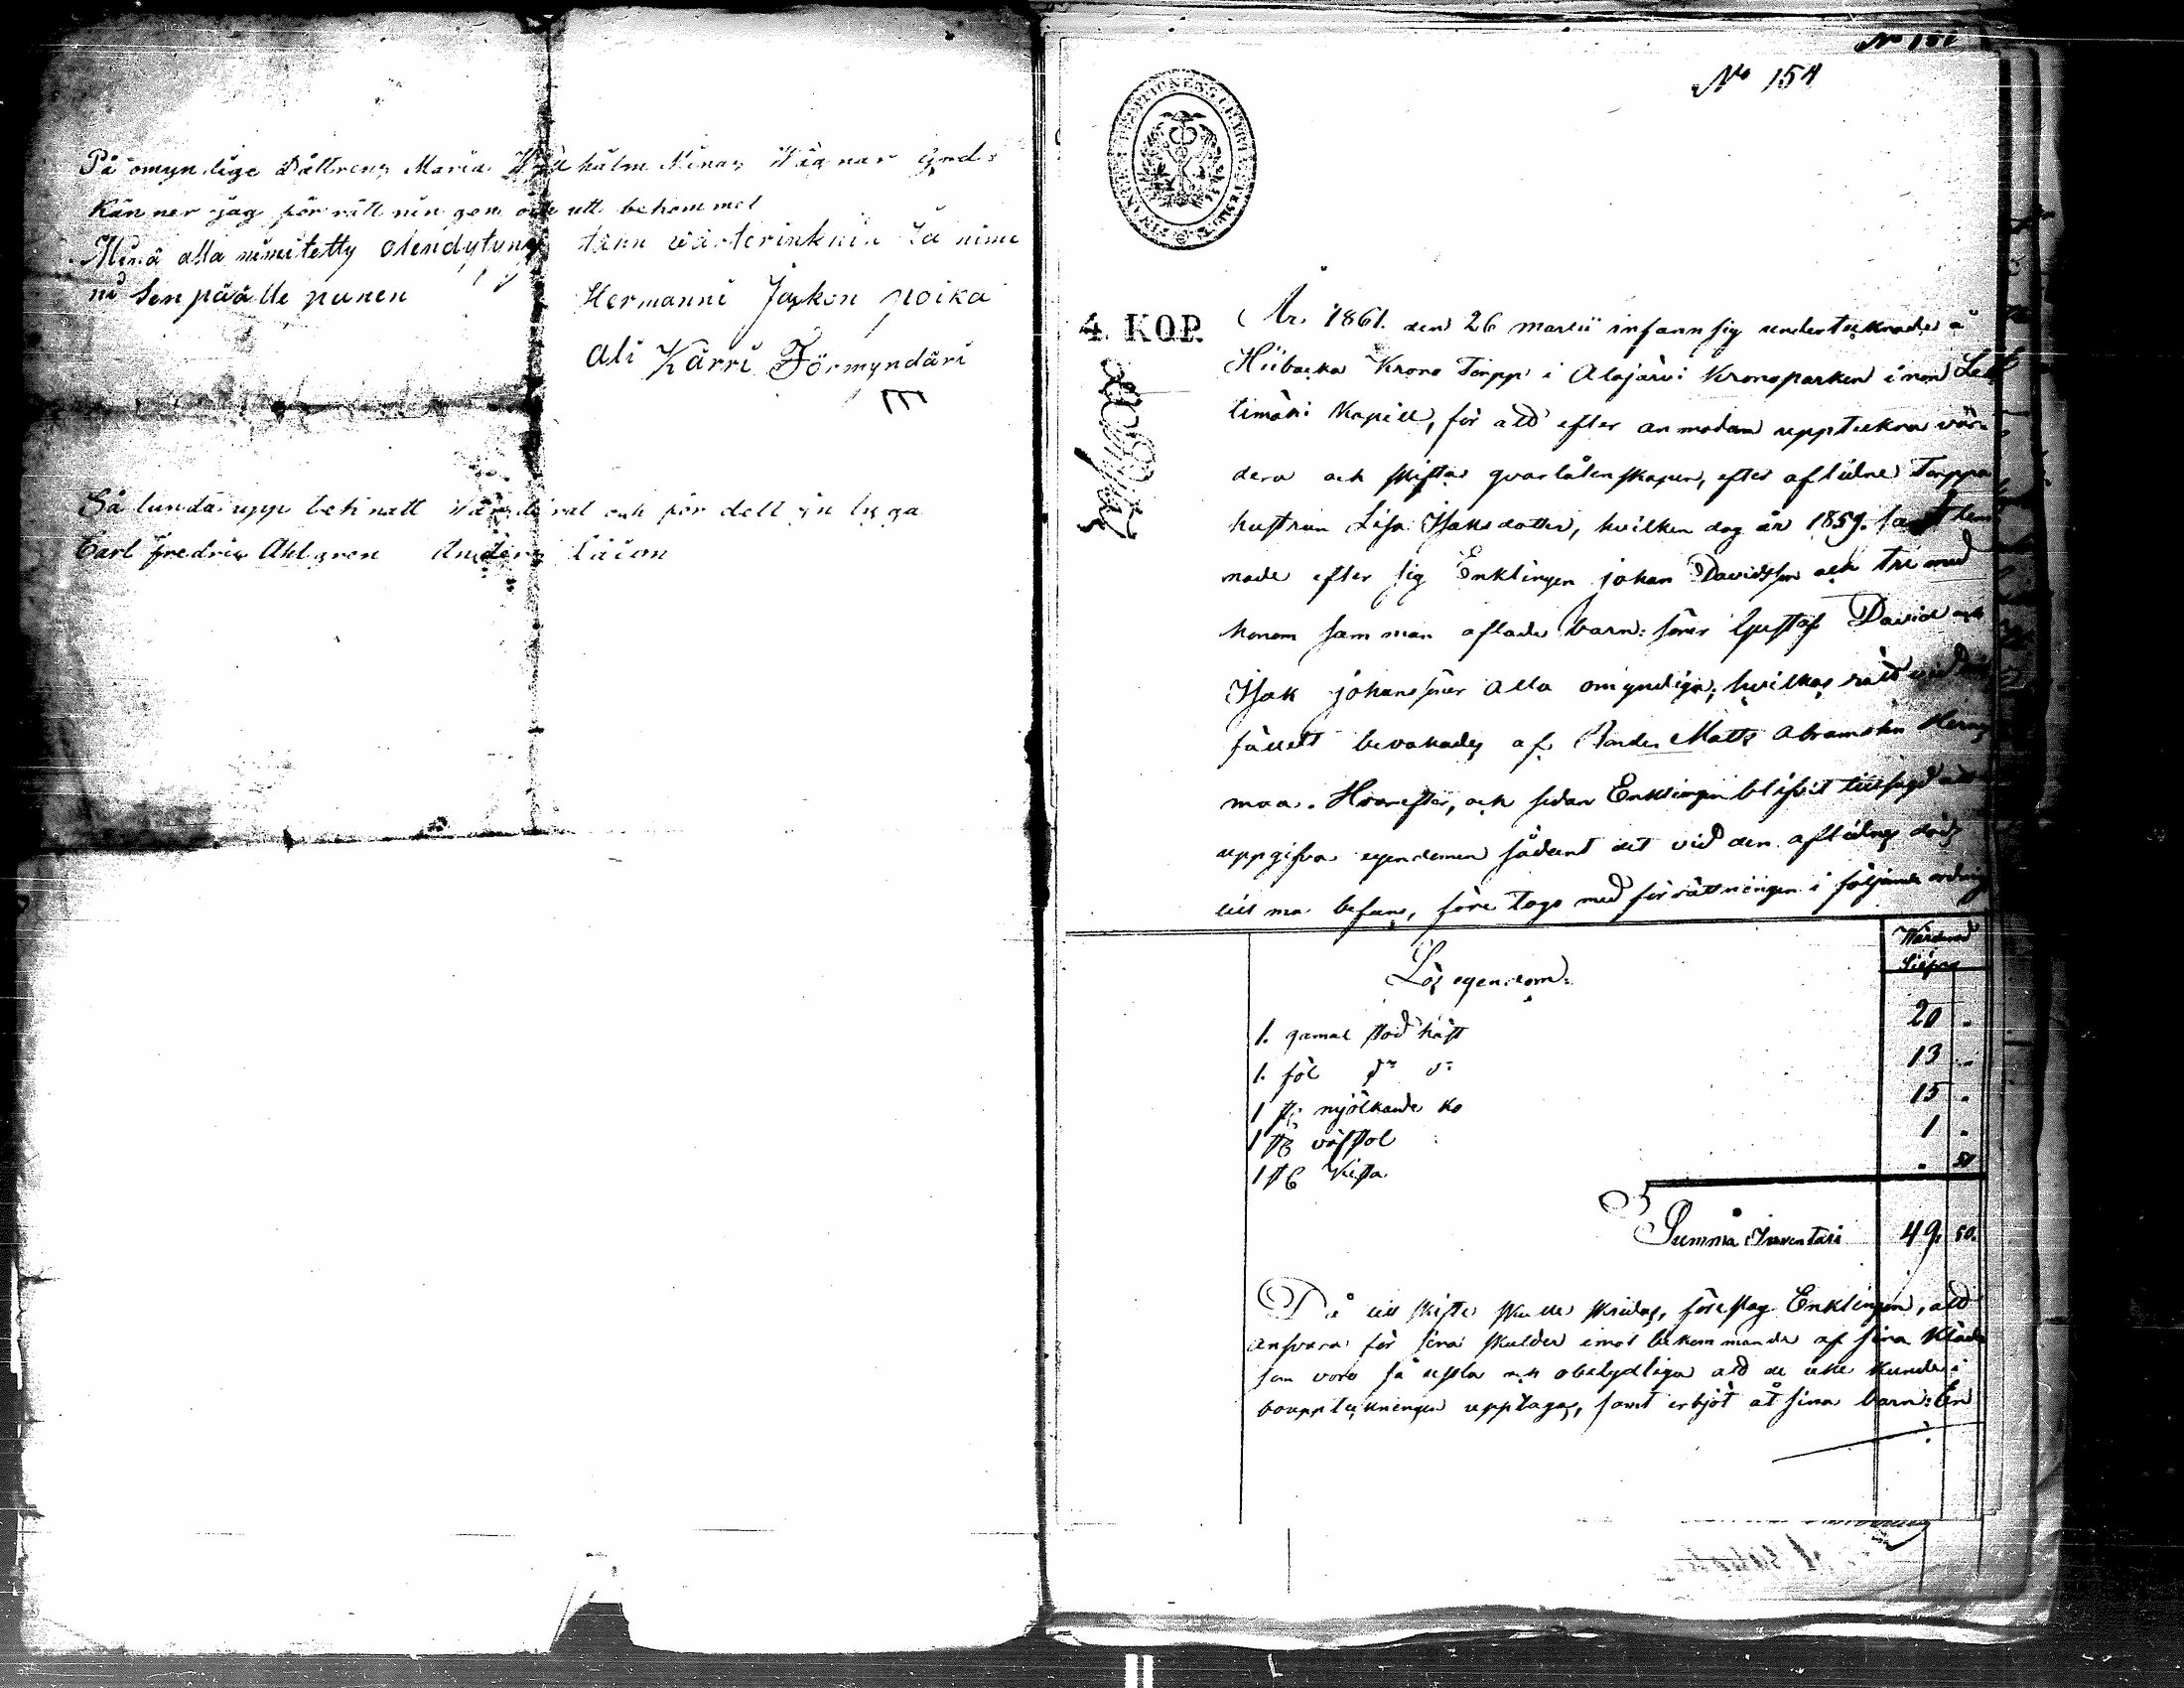 På omyndige Dåttrens Maria Wilhälm Ninas Wägnar ijend:
känner jag för rätt nin gem och utt bekommel
Minä alla nimitetty olen dytyny tänn wärterinknin Ja nime
ni Sen päälle panen Hermanni Jaskon poika
Ali Kärri Förmyndäri
Så lunda upp teknatt Wärderat och för delt in tyga
Carl Fredrik Ahlgren Anders
No 151
No 154
4. KOP.
År 1861. den 26 martii infann sig undertecknade å
Hiibacka Krono Torpp i Alajärvi Kronoparken inom Leh
timäki Kapell, för att efter anmodan uppteckna vär-
dera och skifta qvarlåtenskapen, efter aflidne Torppa
hustrun Lisa Isaksdotter, hvilken dog år 1859. samt lem
nade efter sig Enklingen Johan Davidsson och tre med
honom sam man aflade barn: söner Gustaf David och
Isak Johanssöner alla omyndiga; hvilkas rätt vid
fället bevakades af Bonden Matts Abramsson
maa. Hvarefter, och sedan Enklingen blifvit tillsagd att
uppgifva egendomen sådant det vid den aflidnes döds
till ma befans, före togs med förrättningen i följande ordning
Wärderad
Silfver
Lös egendom:
1. gamal stod häst 20 .
1. föl do do 13 ..
1 st: mjölkande ko 15 .
1 st väfstol 1 .
1 st Kista . 50
Summa Inventari 49. 50.
Då till skifte skulle skridas, föreslog Enklingen, att
ansvara för sina skulder imot bekommande af sina Kläder
som voro så usla och obetydliga att de icke kunde i
boupptekningen upptagas, samt erbjöt åt sina barn: En